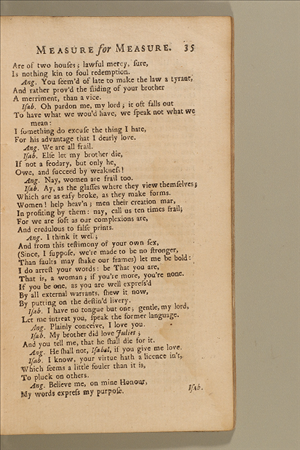 MEASURE for MEASURE. 35
Are of two houses; lawful mercy, sure,
Is nothing kin to foul redemption.
Ang. You seem'd of late to make the law a tyrant,
And rather prov'd the sliding of your brother
A merriment, than a vice.
Isab. Oh pardon me, my lord; it oft falls out
To have what we wou'd have, we speak not what we
mean:
I something do excuse the thing I hate,
For his advantage that I dearly love.
Ang. We are all frail.
Isab. Else let my brother die,
If not a feodary, but only he,
Owe, and succeed by weakness!
Ang. Nay, women are frail too.
Isab. Ay, as the glasses where they view themselves;
Which are as easy broke, as they make forms.
Women! help heav'n; men their creation mar,
In profiting by them: nay, call us ten times frail;
For we are soft as our complexions are,
And credulous to false prints.
Ang. I think it well;
And from this testimony of your own sex,
(Since, I suppose, we're made to be no stronger,
Than faults may shake our frames) let me be bold:
I do arrest your words: be That you are,
That is, a woman; if you're more, you're none.
If you be one, as you are well express'd
By all external warrants, shew it now,
By putting on the destin'd livery.
Isab. I have no tongue but one; gentle, my lord,
Let me intreat you, speak the former language.
Ang. Plainly conceive, I love you.
Isab. My brother did love Juliet;
And you tell me, that he shall die for it.
Ang. He shall not, Isabel, if you give me love.
Isab. I know, your virtue hath a licence in't,
Which seems a little fouler than it is,
To pluck on others.
Ang. Believe me, on mine Honour,
My words express my purpose.
Isab.